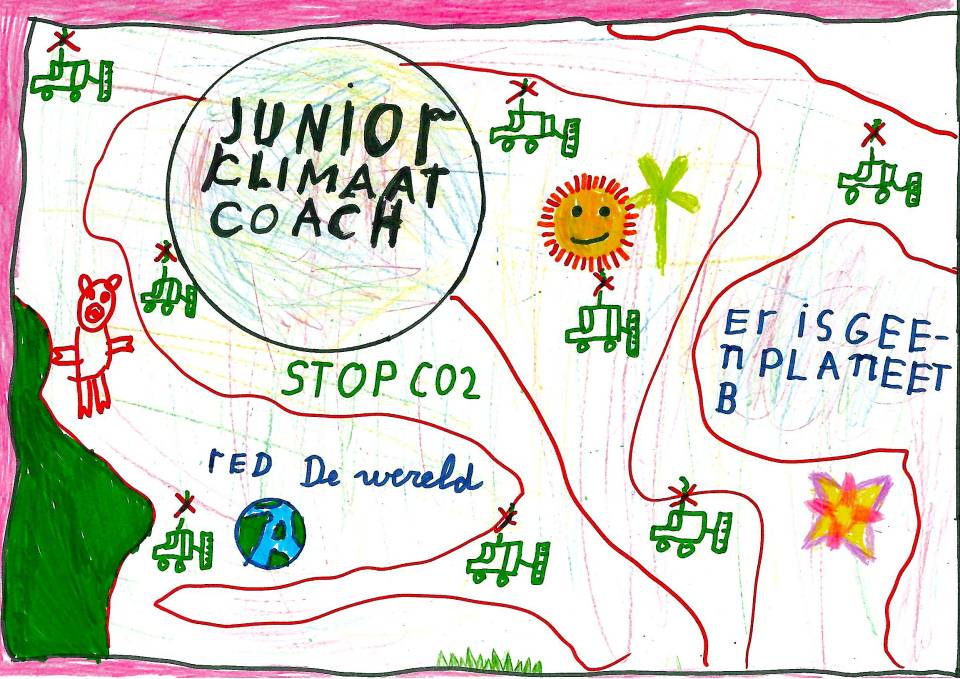 JUNIOR
KLIMAAT
COACH
STOP CO2
rED De wereld
Er iS GEE-
n PLAnEET
B